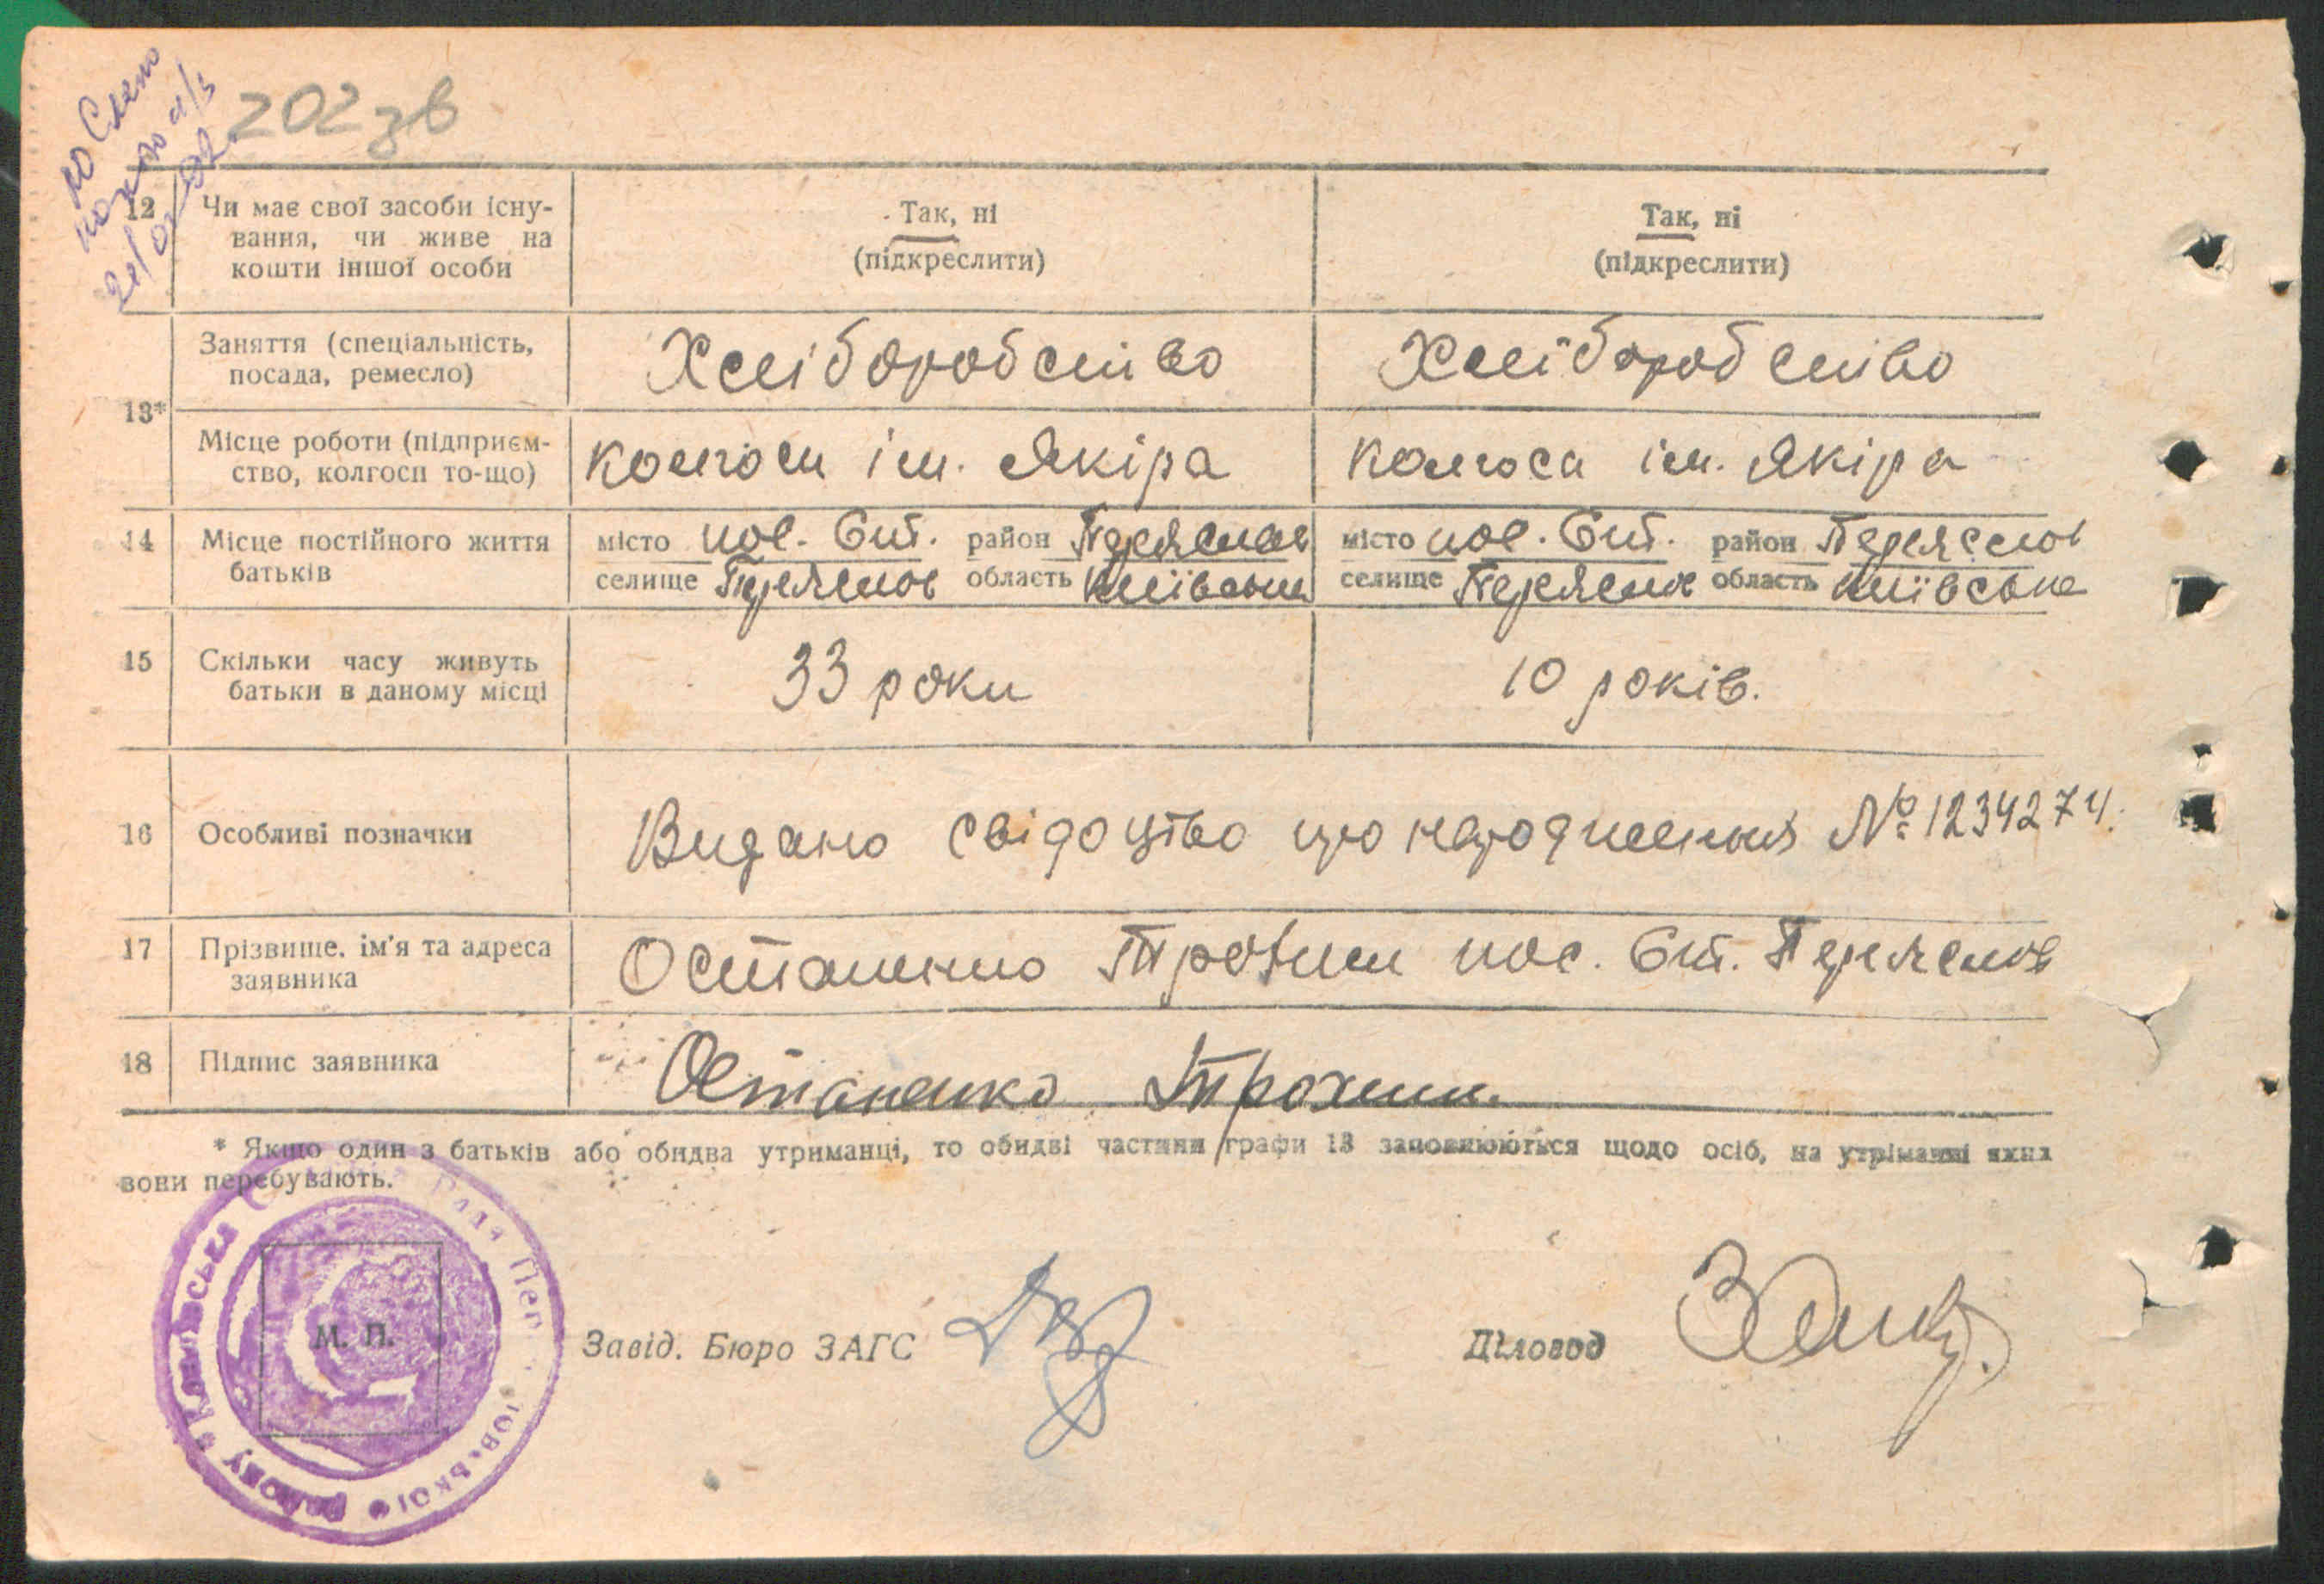 202 зв
12 Чи має свої засоби існу-
вання, чи живе на
кошти іншої особи
Так, ні
(підкреслити)
Так, ні
(підкреслити)
13*
Заняття (спеціальність,
посада, ремесло)
Хліборобство
Хліборобство
Місце роботи (підприєм-
ство, колгосп то-що)
Колгосп ім. Якіра
Колгосп ім. Якіра
14 Місце постійного життя
батьків
місто район Переяслов
селище Переяслов область Київська
місто район Переяслов
селище Переяслов область Київська
15 Скільки часу живуть
батьки в даному місці
33 роки
10 років.
16 Особливі позначки
Видано свідоцтво про народження № 1234274.
17 Прізвище, ім'я та адреса
заявника
Остапенко Трохим Переяслов
18 Підпис заявника
Остапенко Трохим.
* Якщо один з батьків або обидва утриманці, то обидві частини графи 13 заповнюються щодо осіб, на утріманні яких
вони перебувають.
М. П.
Завід. Бюро ЗАГС
Діловод